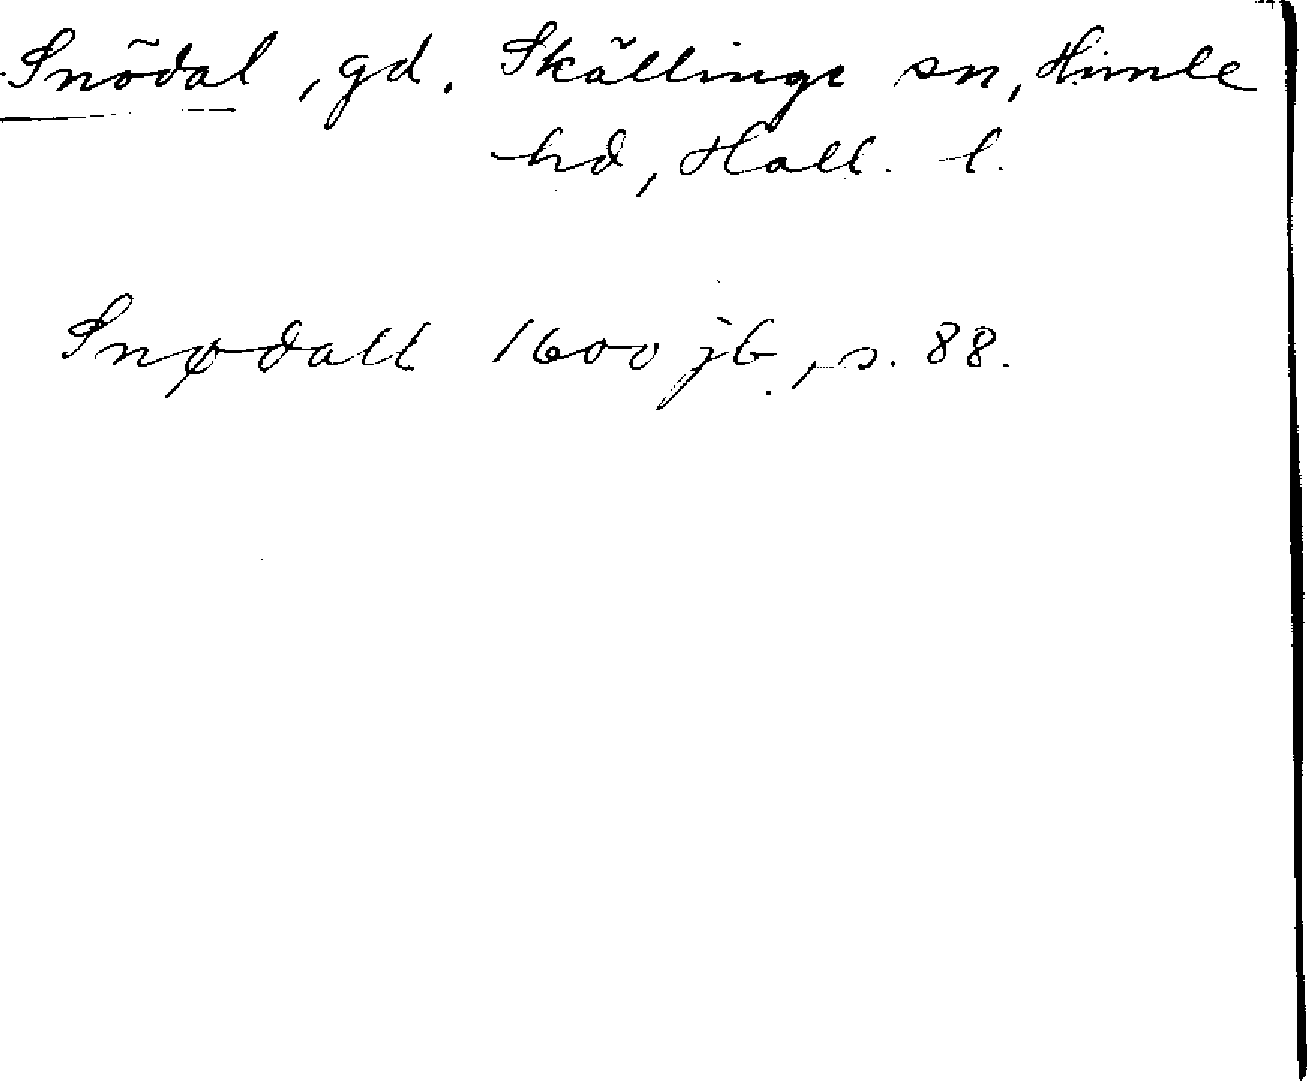 Snödal, gd. Skällinge sn, Himle
hd, Hall. l.
Snødall 1600 jb, s. 88.